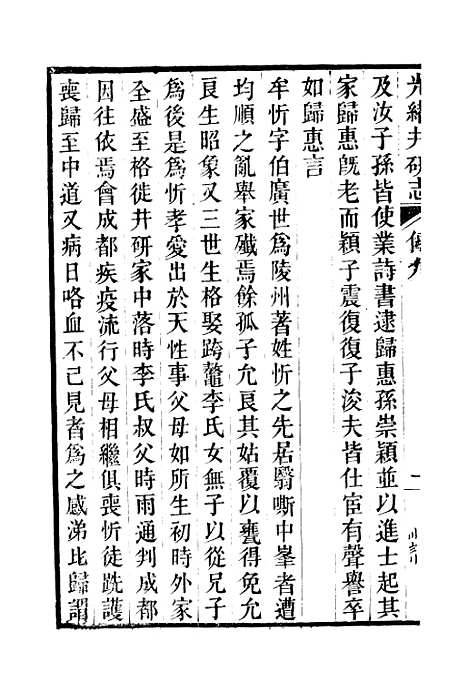 光緒井研志 傳九
及汝子孫皆使業詩書逮歸惠孫崇穎並以進士起其
家歸惠旣老而穎子震復復子浚夫皆仕宦有聲譽卒
如歸惠言
牟忻字伯廣世爲陵州著姓忻之先居翳嘶中峯者遭
均順之亂舉家殲焉餘孤子允㫐其姑覆以甕得免允
㫐生昭象又三世生格娶跨鼇李氏女無子以從兄子
爲後是爲忻孝愛出於天性事父母如所生初時外家
全盛至格徙井研家中落時李氏叔父時雨通判成都
因往依焉會成都疾疫流行父母相繼俱喪忻徒跣護
喪歸至中道又病日咯血不已見者爲之感涕比歸謂